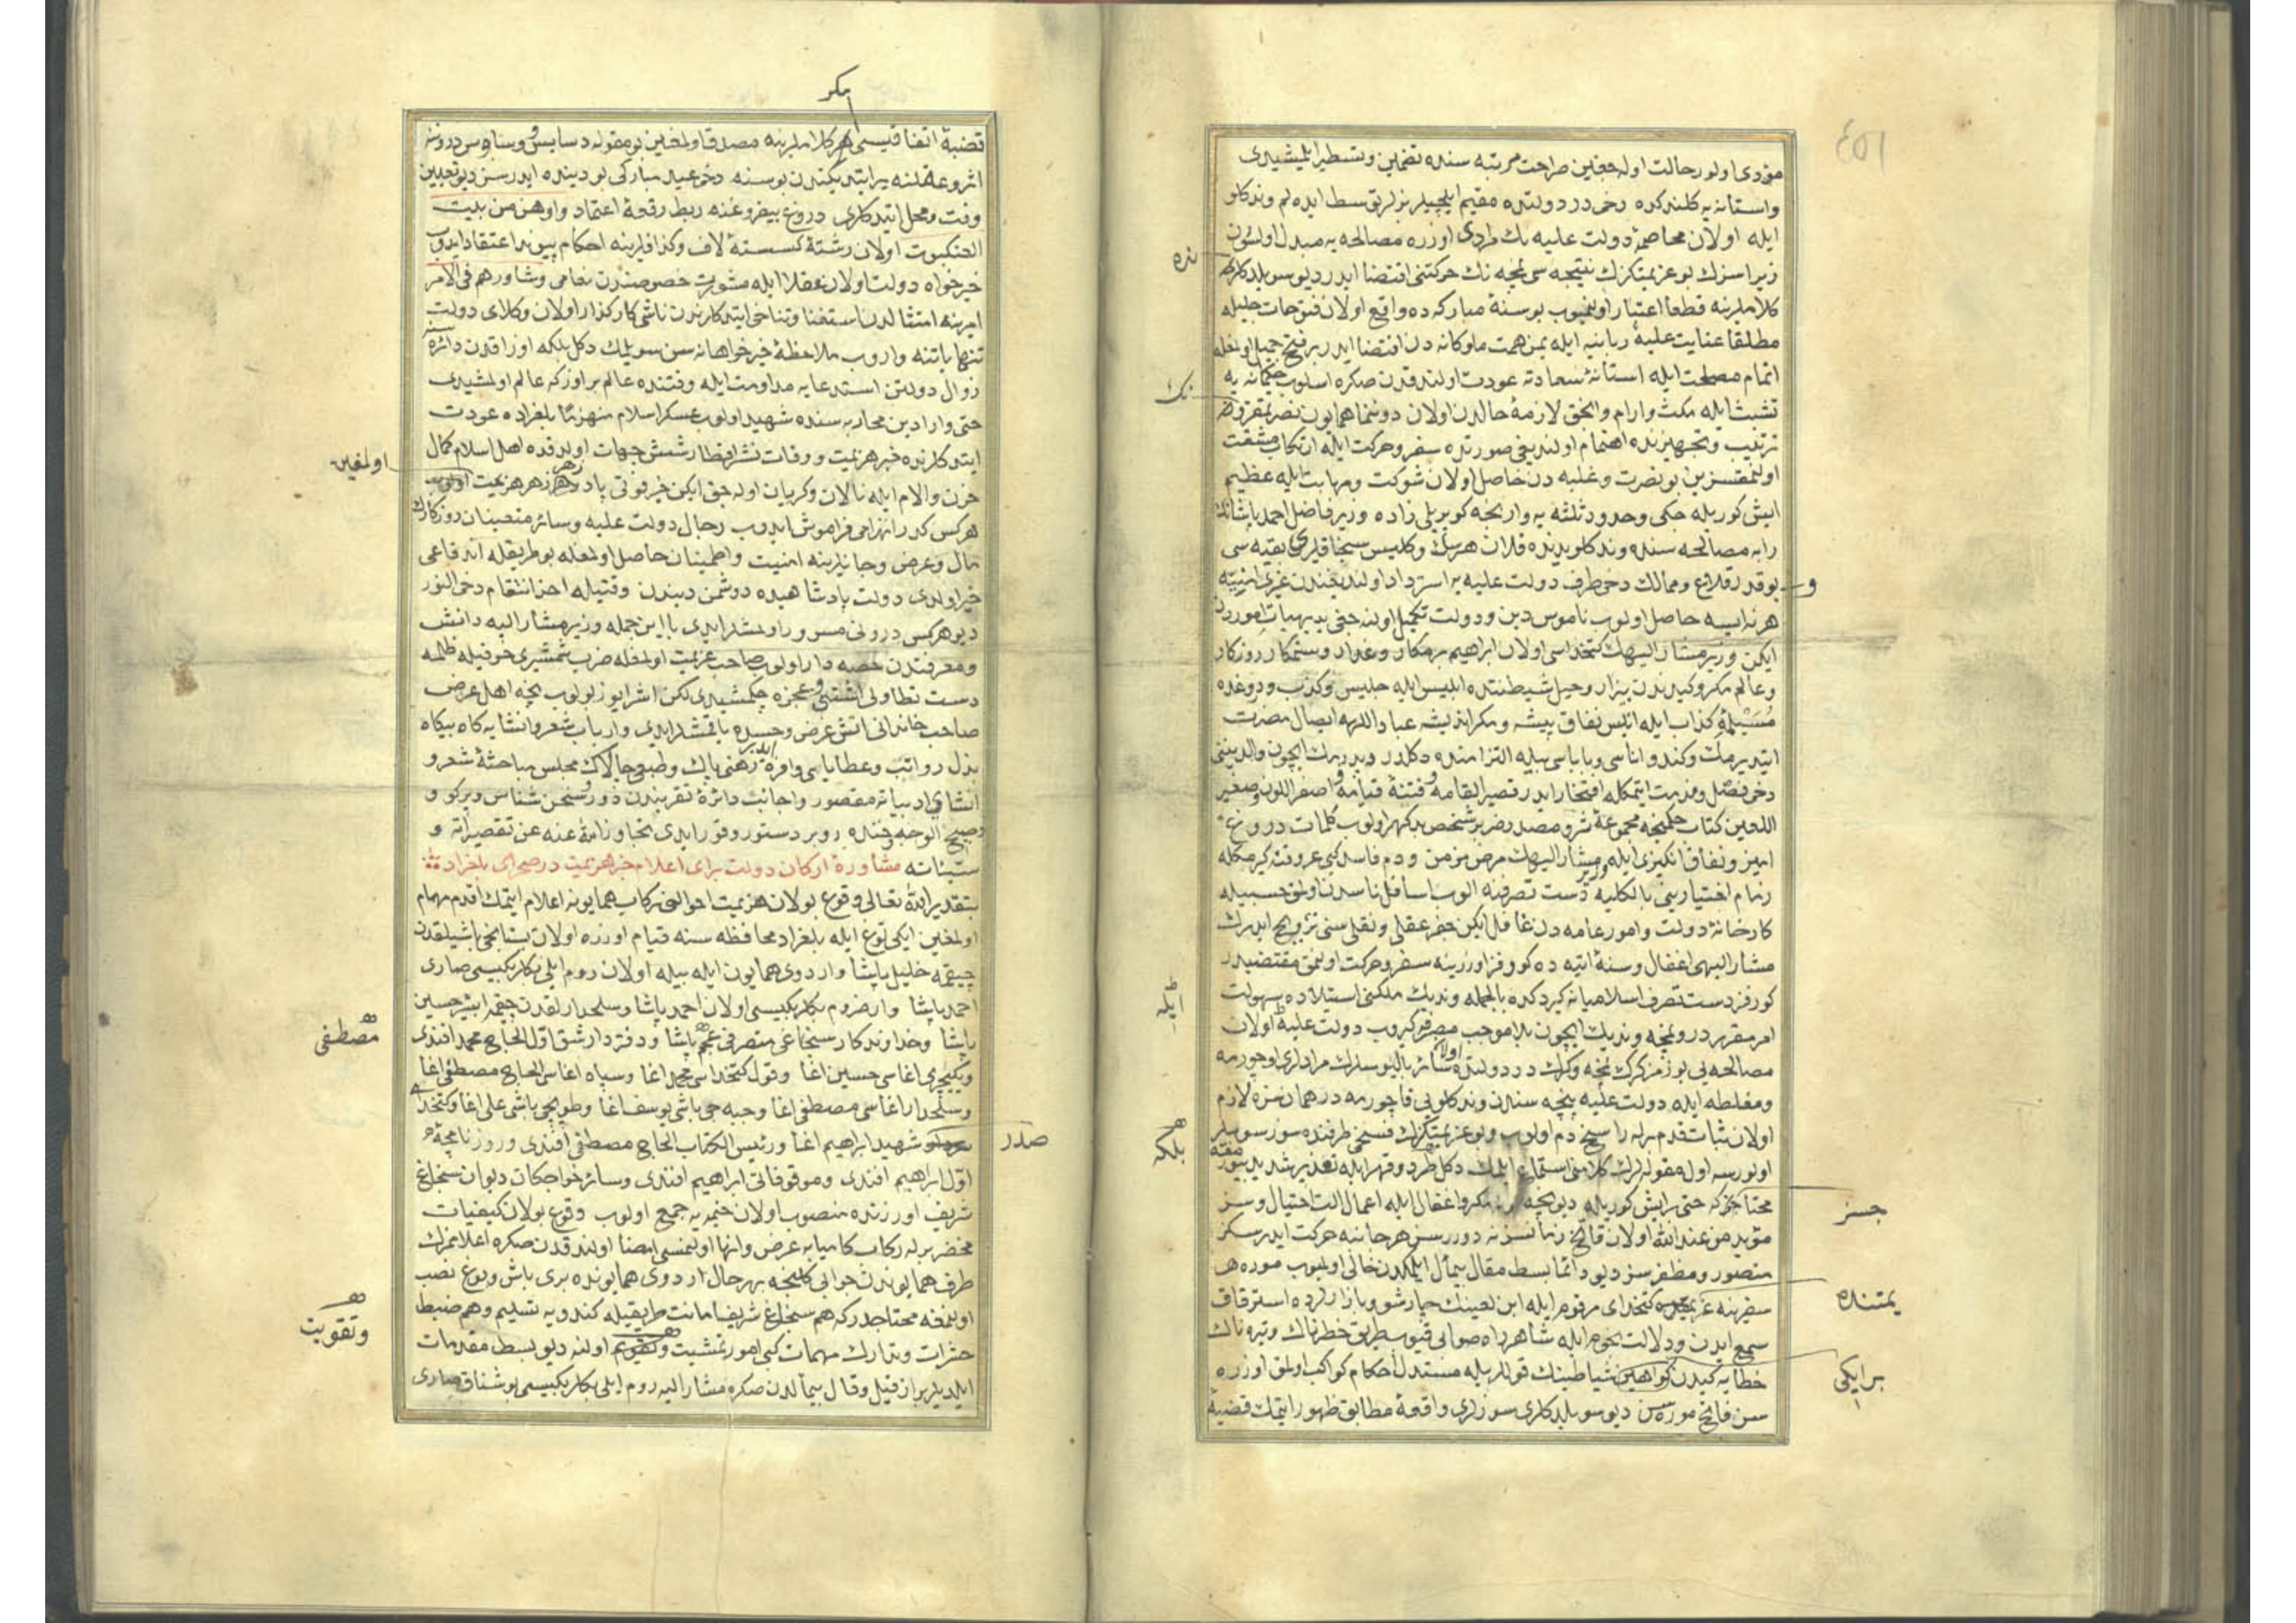 مؤدی اولور حالت اوله جغین صراحت مرتبه سنده تضمین وتسطیر ایلمشیدی
واستانه یه کلندکده دخی در دولتده مقیم ایلچیلر بزلر توسط ایده لم وندکلو
ایله اولان مخاصمهٔ دولت علیه نك مرادی اوزره مصالحه یه مبدل اولسون
زیرا سزك بو عزیمتکزك نتیجه سی نمچه نك حرکتنی اقتضا ایدر دیو سویلدکلری
کلاملرینه قطعا اعتبار اولنمیوب بو سنهٔ مبارکه ده واقع اولان فتوحات جلیله
مطلقا عنایت علیهٔ ربانیه ایله یمن همت ملوکانه دن اقتضا ایدر بر فتح جمیل اولمغله
اتمام مصلحت ایله استانهٔ سعادته عودت اولندقدن صکره اسلوب حکیمانه یه
تشبث ایله مکث وارام والحق لازمهٔ حالدن اولان دوننما همایون نصرتمقرون
ترتیب وتجهیزنده اهتمام اولندیغی صورتده سفر وحرکت ایله ارتکاب مشقت
اولنمقسزین بو نصرت وغلبه دن حاصل اولان شوکت ومهابت ایله عظیم
ایش کوریله جکی وحدود ثلثه یه وارنجه کوپریلی زاده وزیر فاضل احمد پاشانك
رابه مصالحه سنده وندکلو یدنده قلان هرسك وکلیس سنجاقلری بقیه سی
بو قدر قلاع وممالك دخی طرف دولت علیه یه استرداد اولندیغندن غیری امنیه
هر نه ایسه حاصل اولوب ناموس دین ودولت تکمیل اولنه جغی بدیهیات اموردن
ایکن وزیر مشار الیهك کتخداسی اولان ابراهیم بر مکار وغدار وستمکار روزکار
وعالم مکر وکیددن بیزار وحیل شیطنتده ابلیس ایله جلیس وکذب ودوغده
مسیلمهٔ کذاب ایله انیس نفاق پیشه ومکر اندیشه عباد اللهه ایصال مضرت
دخی فصل ومذمت ایتمکله افتخار ایدر قصیر القامه وفتنهٔ قیامه واصفر اللون وصغیر
کارخانهٔ دولت وامور عامه دن غافل ایکن جفر عقلی ونقلی سنی ترویج ایدرك
مشار الیهی اغفال وسنهٔ اتیه ده کورفز اوزرینه سفر وحرکت اولنمق مقتضیدر
کورفز دست تصرف اسلامیانه کیردکده بالجمله وندیك ملکنی استیلاده سهولت
امر مقرردر ونمچه وندیك ایچون بلا موجب سفره کیروب دولت علیه ایله اولان
مصالحه یی بوزمز کرك نمچه وکرك در دولتده اولان سائر بالیوسلرك مرادلری اوجورمه
ومغلطه ایله دولت علیه پنچه سندن وندکلویی قاچورمه در همان سزه لازم
اولان ثبات قدم برله راسخ دم اولوب وبو عزیمتکزك فسخی طرفنده سوز سویلر
اولورسه اول مقوله لرك کلامنی استماع ایلمك دکل طرد وقهر ایله تعذیر شدید بیور
مؤید من عند الله اولان فاتح زمانسز نه دورسز هر جانبه حرکت ایدرسکز
منصور ومظفرسز دیو دائما بسط مقال بیمأل ایلمکدن خالی اولمیوب موره
سفرینه کتخدای مرقوم ایله ابن لعینك چارشو وبازارلرده استرقاق
سمع ایدن ودلالت نجوم ایله شاهراه صوابی قیوب طریق خطرناك وتیره ناك
خطایه کیدن شیاطینك قوللریله مستدل احکام کواکب اولمق اوزره
سن فاتح موره سن دیو سویلدکلری سوزلری واقعهٔ مطابق ظهور ایتمك قضیهٔ
نده
نك
و
ایله
بلکه
جسز
یمتنده
بر ایکی
بکر
قضیهٔ اتفاقیسی هر کلاملرینه مصدق اولمغین بو مقوله دسایس ووساوس درونه
اثر وعقلنه سرایت ایتدیکندن بو سنه دخی عید مبارکی بودینده ایدرسن دیو تعیین
وقت ومحل ایتدکلری دروغ بیفروغنه ربط رقعهٔ اعتماد واوهن من بیت
العنکبوت اولان رشتهٔ کسستهٔ لاف وکذافلرینه احکام پیوند اعتقاد ایدوب
خیرخواه دولت اولان عقلا ایله مشورت خصوصندن تعامی وشاورهم فی الامر
امرینه امتثالدن استغنا وتناخی ایتدکلرندن ناشی کارکذار اولان وکلای دولت
تنها یاتنه واروب ملاحظهٔ خیرخواهانه سن سویلمك دکل بلکه اوزاقدن دائره سنه
زوال دولتن استدعایه مداومت ایله وفتنده عالم بر اوزکه عالم اولمشیدی
حتی وارادین محاربه سنده شهید اولوب عسکر اسلام منهزما بلغراده عودت
ایتدکلرنده خبر هزیمت ووفات نشر اقطار شش جهات اولدقده اهل اسلام کمال
حزن والام ایله نالان وکریان اوله جق ایکن خبر فوتی پادزهر زهر هزیمت
هرکس کدر انهزامی فراموش ایدوب رجال دولت علیه وسائر متعینان روزکارك
مال وعرض وجانلرینه امنیت واطمینان حاصل اولمغله بو طریقله اندفاعی
خیر اولدی دولت پادشاهیده دوشمن دیندن وقتیله اخذ انتقام دخی النور
دیو هرکس درونی مسرور اولمشلر ایدی با این جمله وزیر مشار الیه دانش
ومعرفتدن حصه دار اولوب صاحب عزیمت اولمغله ضرب شمشیری خوفیله ظلمه
دست تطاولی چکمشیدی لکن اشرار یوز بولوب نیجه اهل عرض
صاحب خاندانی اتش عرض وحسده یاقمشلر ایدی وارباب شعر وانشایه کاه بیکاه
بذل رواتب وعطایای وافره ایدر ذهنی پاك وطبعی چالاك مجلس مباحثهٔ شعر و
انشای ادبیاته مقصور واجانب دائرهٔ تقربندن دور وسخن شناس وپرکو و
صبیح الوجه وخنده رو بر دستور وقور ایدی تجاوز الله عنه عن تقصیراته و
سیئاته مشاورهٔ ارکان دولت برای اعلام خبر هزیمت در صحرای بلغراد
بتقدیر الله تعالی وقوع بولان هزیمت احوالنی رکاب همایونه اعلام ایتمك اقدم مهام
اولمغین ایکی توغ ایله بلغراد محافظه سنه قیام اوزره اولان بستانجی باشیلقدن
چیقمه خلیل پاشا واردوی همایون ایله بیله اولان روم ایلی بکلربکیسی صاری
احمد پاشا وارضروم بکلربکیسی اولان احمد پاشا وسلحدارلقدن چیقمه ابشیر حسین
پاشا وخداوندکار سنجاغی متصرفی عجم پاشا ودفتردار شق اول الحاج محمد افندی
ویکیچری اغاسی حسین اغا وقول کتخداسی محمد اغا وسپاه اغاسی الحاج مصطفی اغا
وسلحدار اغاسی مصطفی اغا وجبه جی باشی یوسف اغا وطوپجی باشی علی اغا وکتخدا
شهید ابراهیم اغا ورئیس الکتاب الحاج مصطفی افندی وروزنامچهٔ
اول ابراهیم افندی وموقوفاتی ابراهیم افندی وسائر خواجکان دیوان سنجاغ
شریف اوزرنده منصوب اولان خیمه یه جمع اولوب وقوع بولان کیفیات
محضر برله رکاب کامیابه عرض وانها اولنمسی امضا اولندقدن صکره اعلامنزك
طرف همایوندن جوابی کلنجه بهرحال اردوی همایونده بری باش وبوغ نصب
اولنمغه محتاجدر که هم سنجاغ شریف امانت طریقیله کندویه تسلیم وهم ضبط
حشرات وتدارك مهمات کبی امور تمشیت اولنه دیو بسط مقدمات
ایلدیلر بر از قیل وقال بیمألدن صکره مشار الیه روم ایلی بکلربکیسی بوشناق صاری
اولمغین
مصطفی
صدر
وتقویت